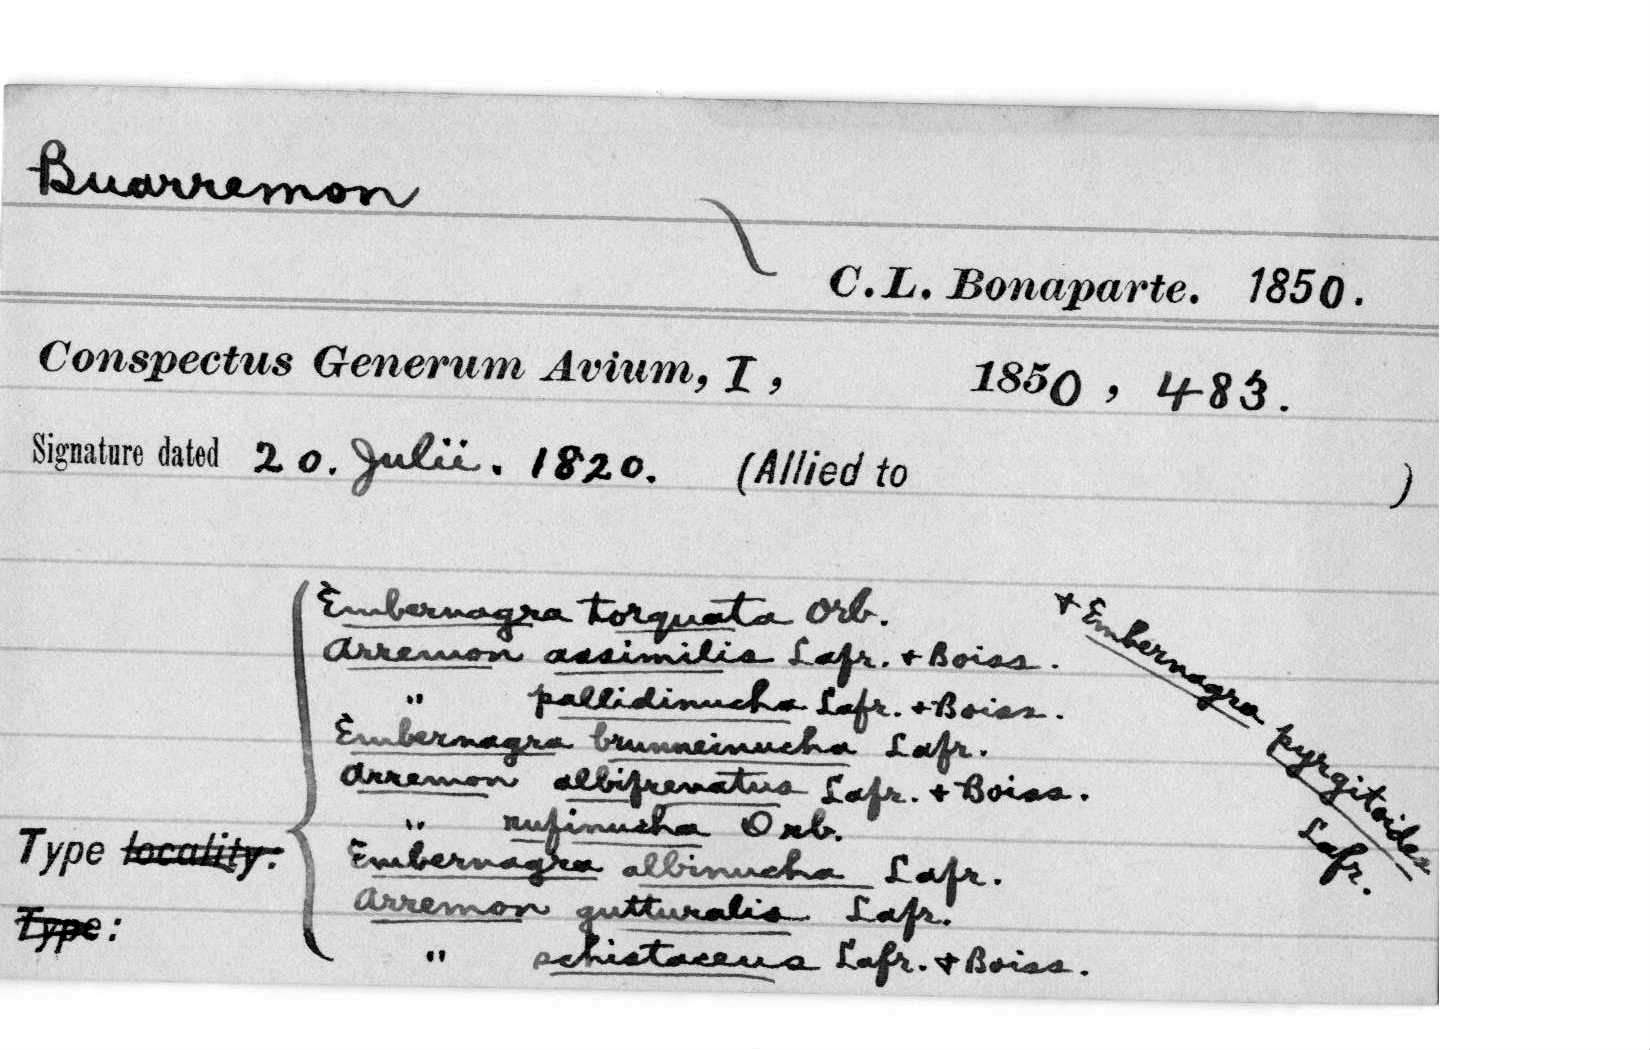 Buarremon
C. L. Bonaparte. 1850.
Conspectus Generum Avium, I, 1850, 483.
Signature dated 20. Julii. 1820. (Allied to )
Embernagra torquata Orb.
Arremon assimilis Lafr. + Boiss.
" pallidinucha Lafr. + Boiss.
Embernagra brunneinucha Lafr.
Arremon albifrenatus Lafr. + Boiss.
" rufinucha Orb.
Type locality:
Embernagra albinucha Lafr.
Arremon gutturalis Lafr.
Type:
" schistaceus Lafr. + Boiss.
+ Embernagra pyrgitoides
Lafr.